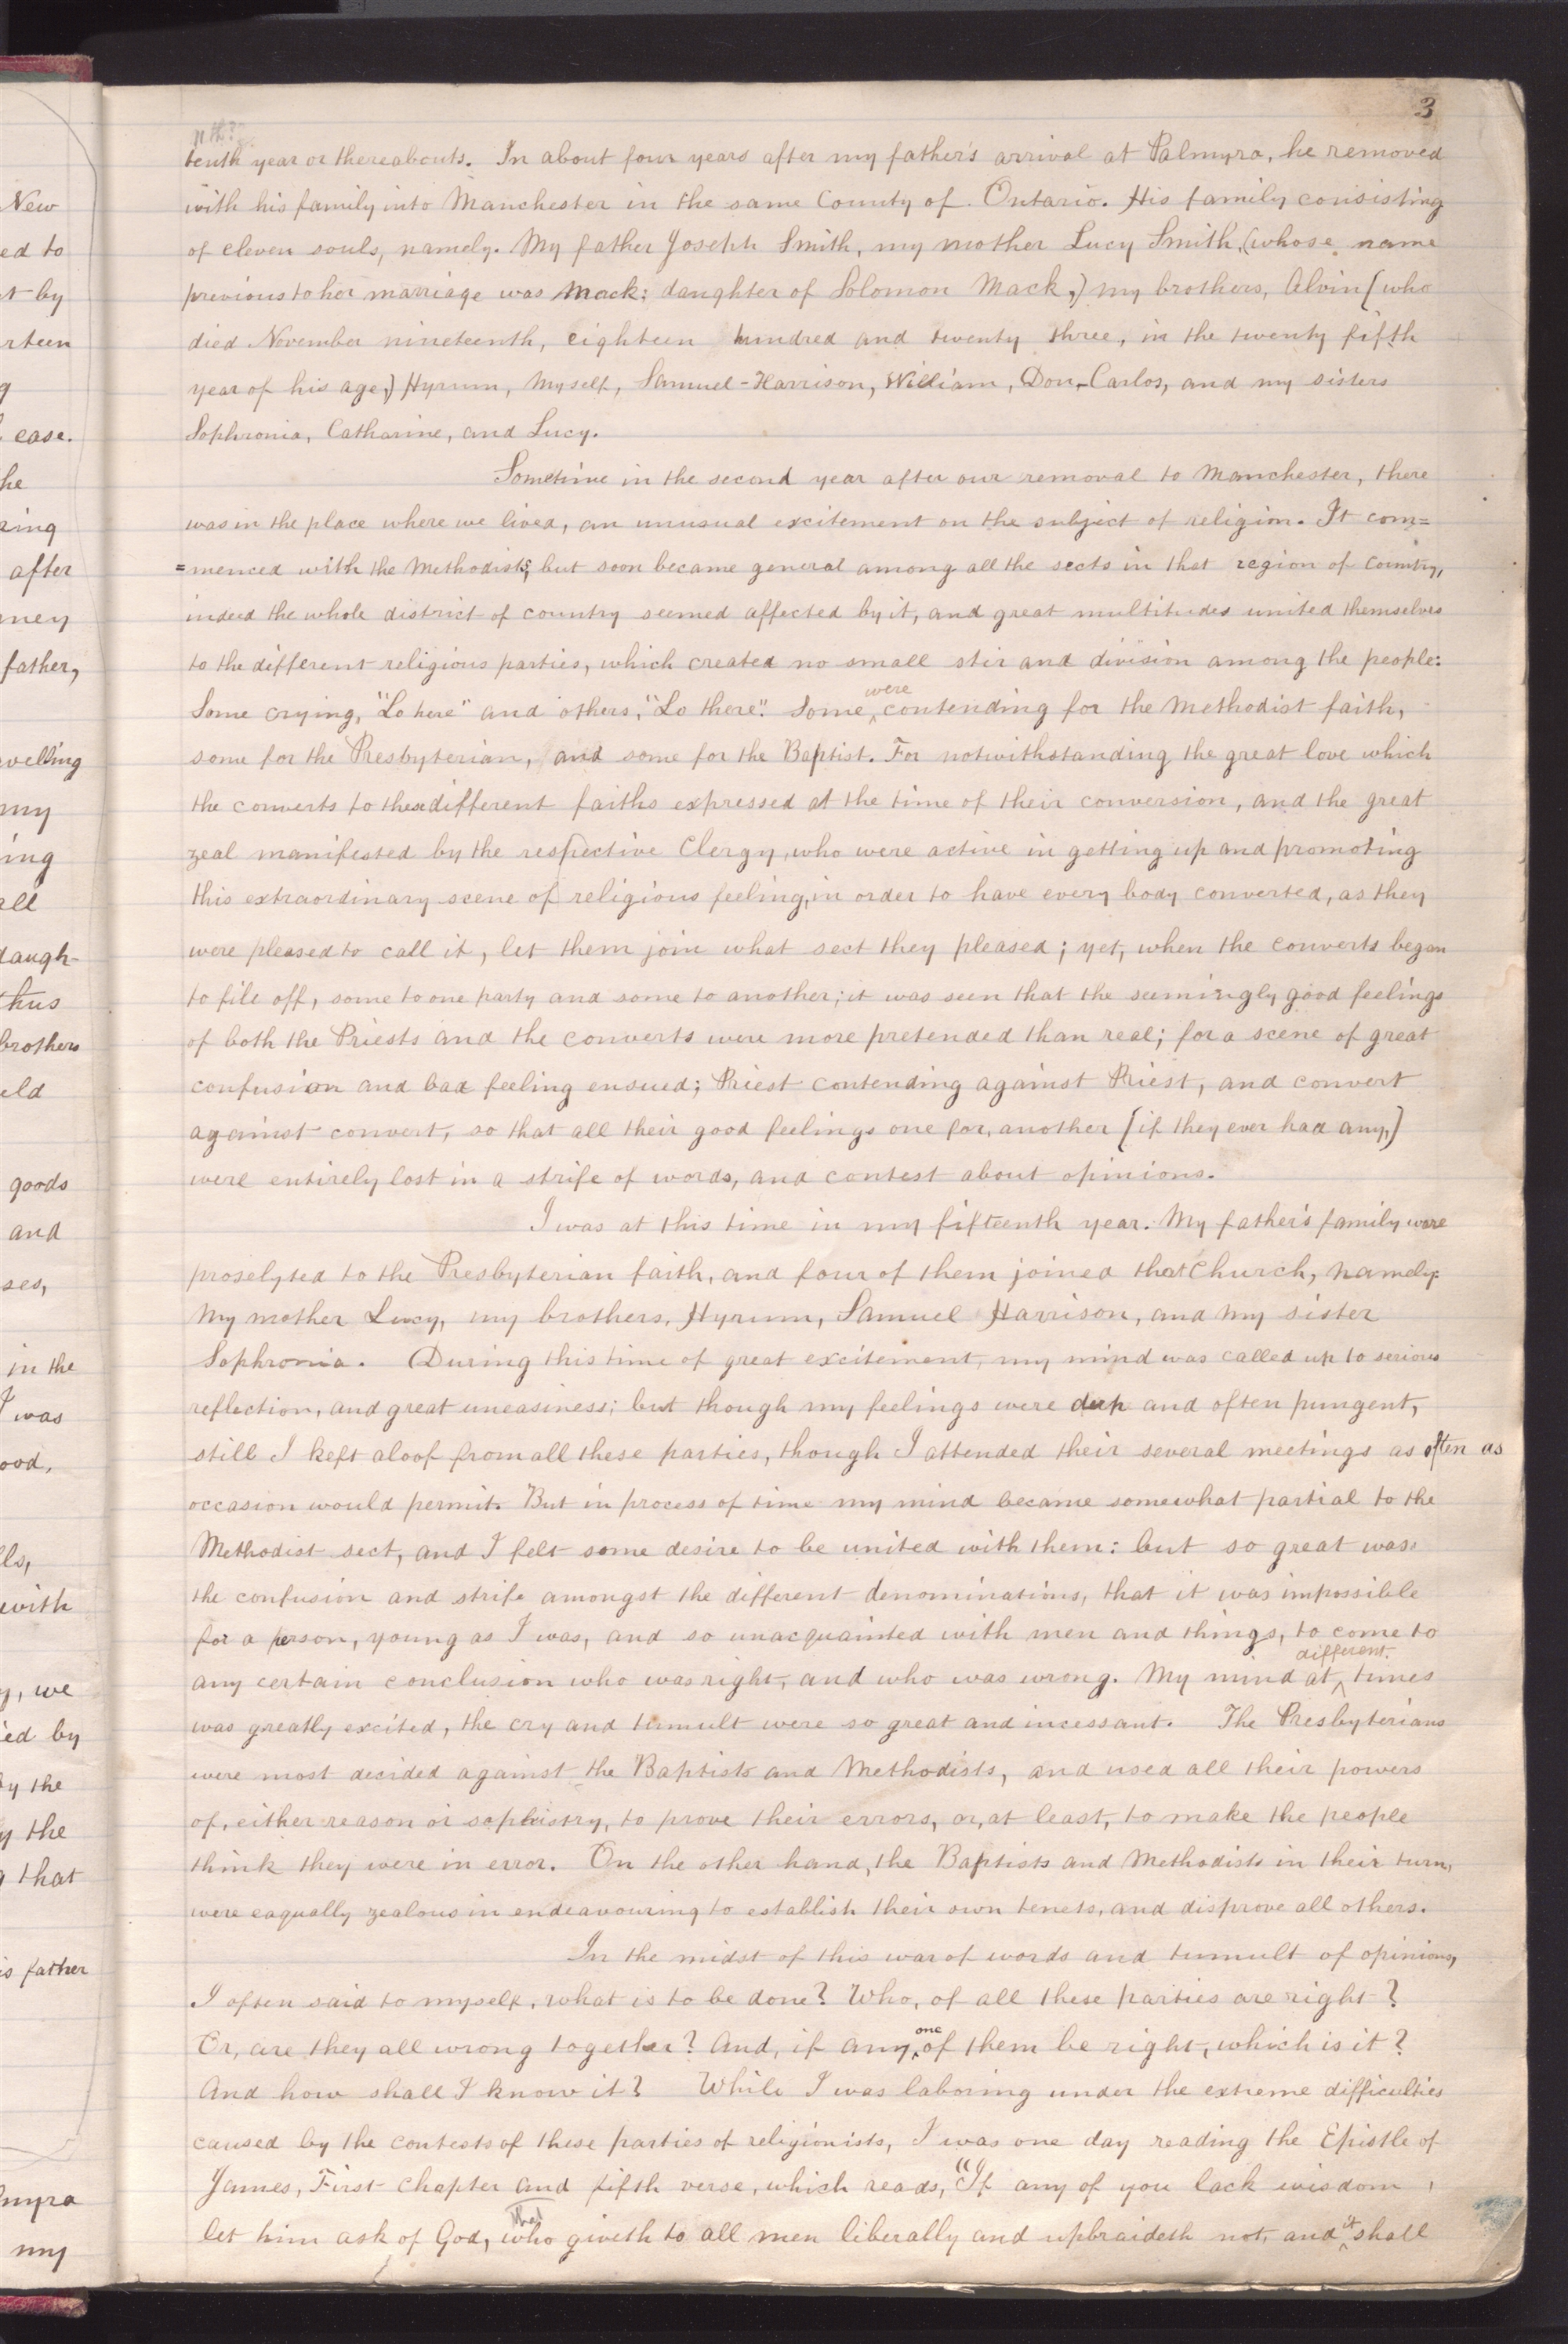 3
New
ed to
t by
rteen
g
ease.
he
ring
after
ney
father,
velling
my
ing
all
daugh-
thus
brothers
eld
goods
and
ses,
in the
I was
ood,
lls,
with
y, we
ied by
by the
y the
g that
is father
myra
my
nth?
tenth year or thereabouts. In about four years after my father's arrival at Palmyra, he removed
with his family into Manchester in the same County of Ontario. His family consisting
of eleven souls, namely. My father Joseph Smith, my mother Lucy Smith, (whose name
previous to her marriage was Mack; daughter of Solomon Mack,) my brothers, Alvin [who
died November nineteenth, eighteen hundred and twenty three, in the twenty fifth
year of his age,) Hyrum, Myself, Samuel-Harrison, William, Don-Carlos, and my sisters
Sophronia, Catharine, and Lucy.
Sometime in the second year after our removal to Manchester, there
was in the place where we lived, an unusual excitement on the subject of religion. It com=
=menced with the Methodists; but soon became general among all the sects in that region of country,
indeed the whole district of country seemed affected by it, and great multitudes united themselves
to the different religious parties, which created no small stir and division among the people:
Some crying, "Lo here" and others, "Lo there". Some ^were contending for the Methodist faith,
some for the Presbyterian, and some for the Baptist. For notwithstanding the great love which
the converts to these different faiths expressed at the time of their conversion, and the great
zeal manifested by the respective Clergy, who were active in getting up and promoting
this extraordinary scene of religious feeling, in order to have every body converted, as they
were pleased to call it, let them join what sect they pleased; yet, when the converts began
to file off, some to one party and some to another; it was seen that the seemingly good feelings
of both the Priests and the converts were more pretended than real; for a scene of great
confusion and bad feeling ensued; Priest contending against Priest, and convert
against convert, so that all their good feelings one for, another [if they ever had any,]
were entirely lost in a strife of words, and contest about opinions.
I was at this time in my fifteenth year. My father's family were
proselyted to the Presbyterian faith, and four of them joined that Church, namely-
My mother Lucy, my brothers, Hyrum, Samuel Harrison, and my sister
Sophronia. During this time of great excitement, my mind was called up to serious
reflection, and great uneasiness; but though my feelings were deep and often pungent,
still I kept aloof from all these parties, though I attended their several meetings as often as
occasion would permit. But in process of time my mind became somewhat partial to the
Methodist sect, and I felt some desire to be united with them: but so great was
the confusion and strife amongst the different denominations, that it was impossible
for a person, young as I was, and so unacquainted with men and things, to come to
any certain conclusion who was right, and who was wrong. My mind at ^different times
was greatly excited, the cry and tumult were so great and incessant. The Presbyterians
were most decided against the Baptists and Methodists, and used all their powers
of, either reason or sophistry, to prove their errors, or, at least, to make the people
think they were in error. On the other hand, the Baptists and Methodists in their turn,
were eaqually zealous in endeavouring to establish their own tenets, and disprove all others.
In the midst of this war of words and tumult of opinions,
I often said to myself, what is to be done? Who, of all these parties are right?
Or, are they all wrong together? And, if any ^one of them be right, which is it?
And how shall I know it? While I was laboring under the extreme difficulties
caused by the contests of these parties of religionists, I was one day reading the Epistle of
James, First chapter and fifth verse, which reads, "If any of you lack wisdom,
let him ask of God, that who giveth to all men liberally and upbraideth not, and ^it shall